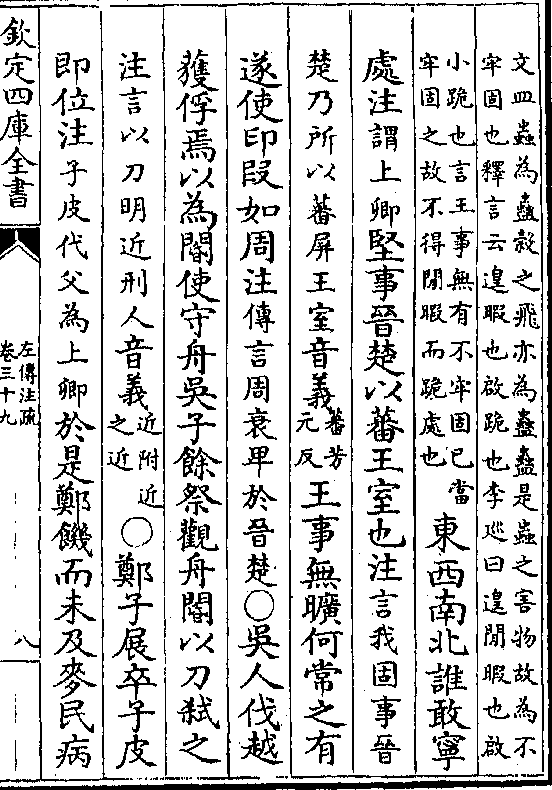 文皿蟲為蠱穀之飛亦為蠱蠱是蟲之害物故為不
牢固也釋言云遑暇也啟跪也李廵曰遑閒暇也啟
小跪也言王事無有不牢固已當
牢固之故不得閒暇而跪處也
東西南北誰敢寧
處注謂上卿堅事晉楚以蕃王室也注言我固事晉
楚乃所以蕃屏王室音義
蕃芳
元反
王事無曠何常之有
遂使印段如周注傳言周衰卑於晉楚○吳人伐越
獲俘焉以為閽使守舟吳子餘祭觀舟閽以刀弒之
注言以刀明近刑人音義
近附近
之近
○鄭子展卒子皮
即位注子皮代父為上卿於是鄭饑而未及麥民病
欽定四庫全書
左傳注疏
卷三十九
八